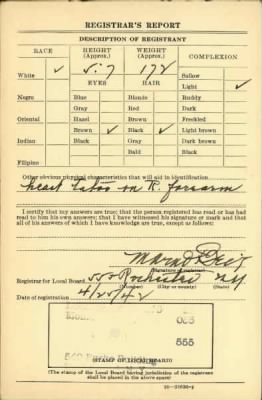 REGISTRAR'S REPORT
DESCRIPTION OF REGISTRANT
RACE HEIGHT (Approx.) WEIGHT (Approx.) COMPLEXION
White ✓ 5.7 172 Sallow
EYES HAIR Light ✓
Negro Blue Blonde Ruddy
Gray Red Dark
Oriental Hazel Brown Freckled
Brown ✓ Black ✓ Light brown
Indian Black Gray Dark brown
Bald Black
Filipino
Other obvious physical characteristics that will aid in identification
heart Tatoo on R. forearm
I certify that my answers are true; that the person registered has read or has had
read to him his own answers; that I have witnessed his signature or mark and that
all of his answers of which I have knowledge are true, except as follows:
(Signature of registrar)
Registrar for Local Board 555 Rochester NY
(Number) (City or county) (State)
Date of registration 4/25/42
555
(STAMP OF LOCAL BOARD)
(The stamp of the Local Board having jurisdiction of the registrant
shall be placed in the above space)